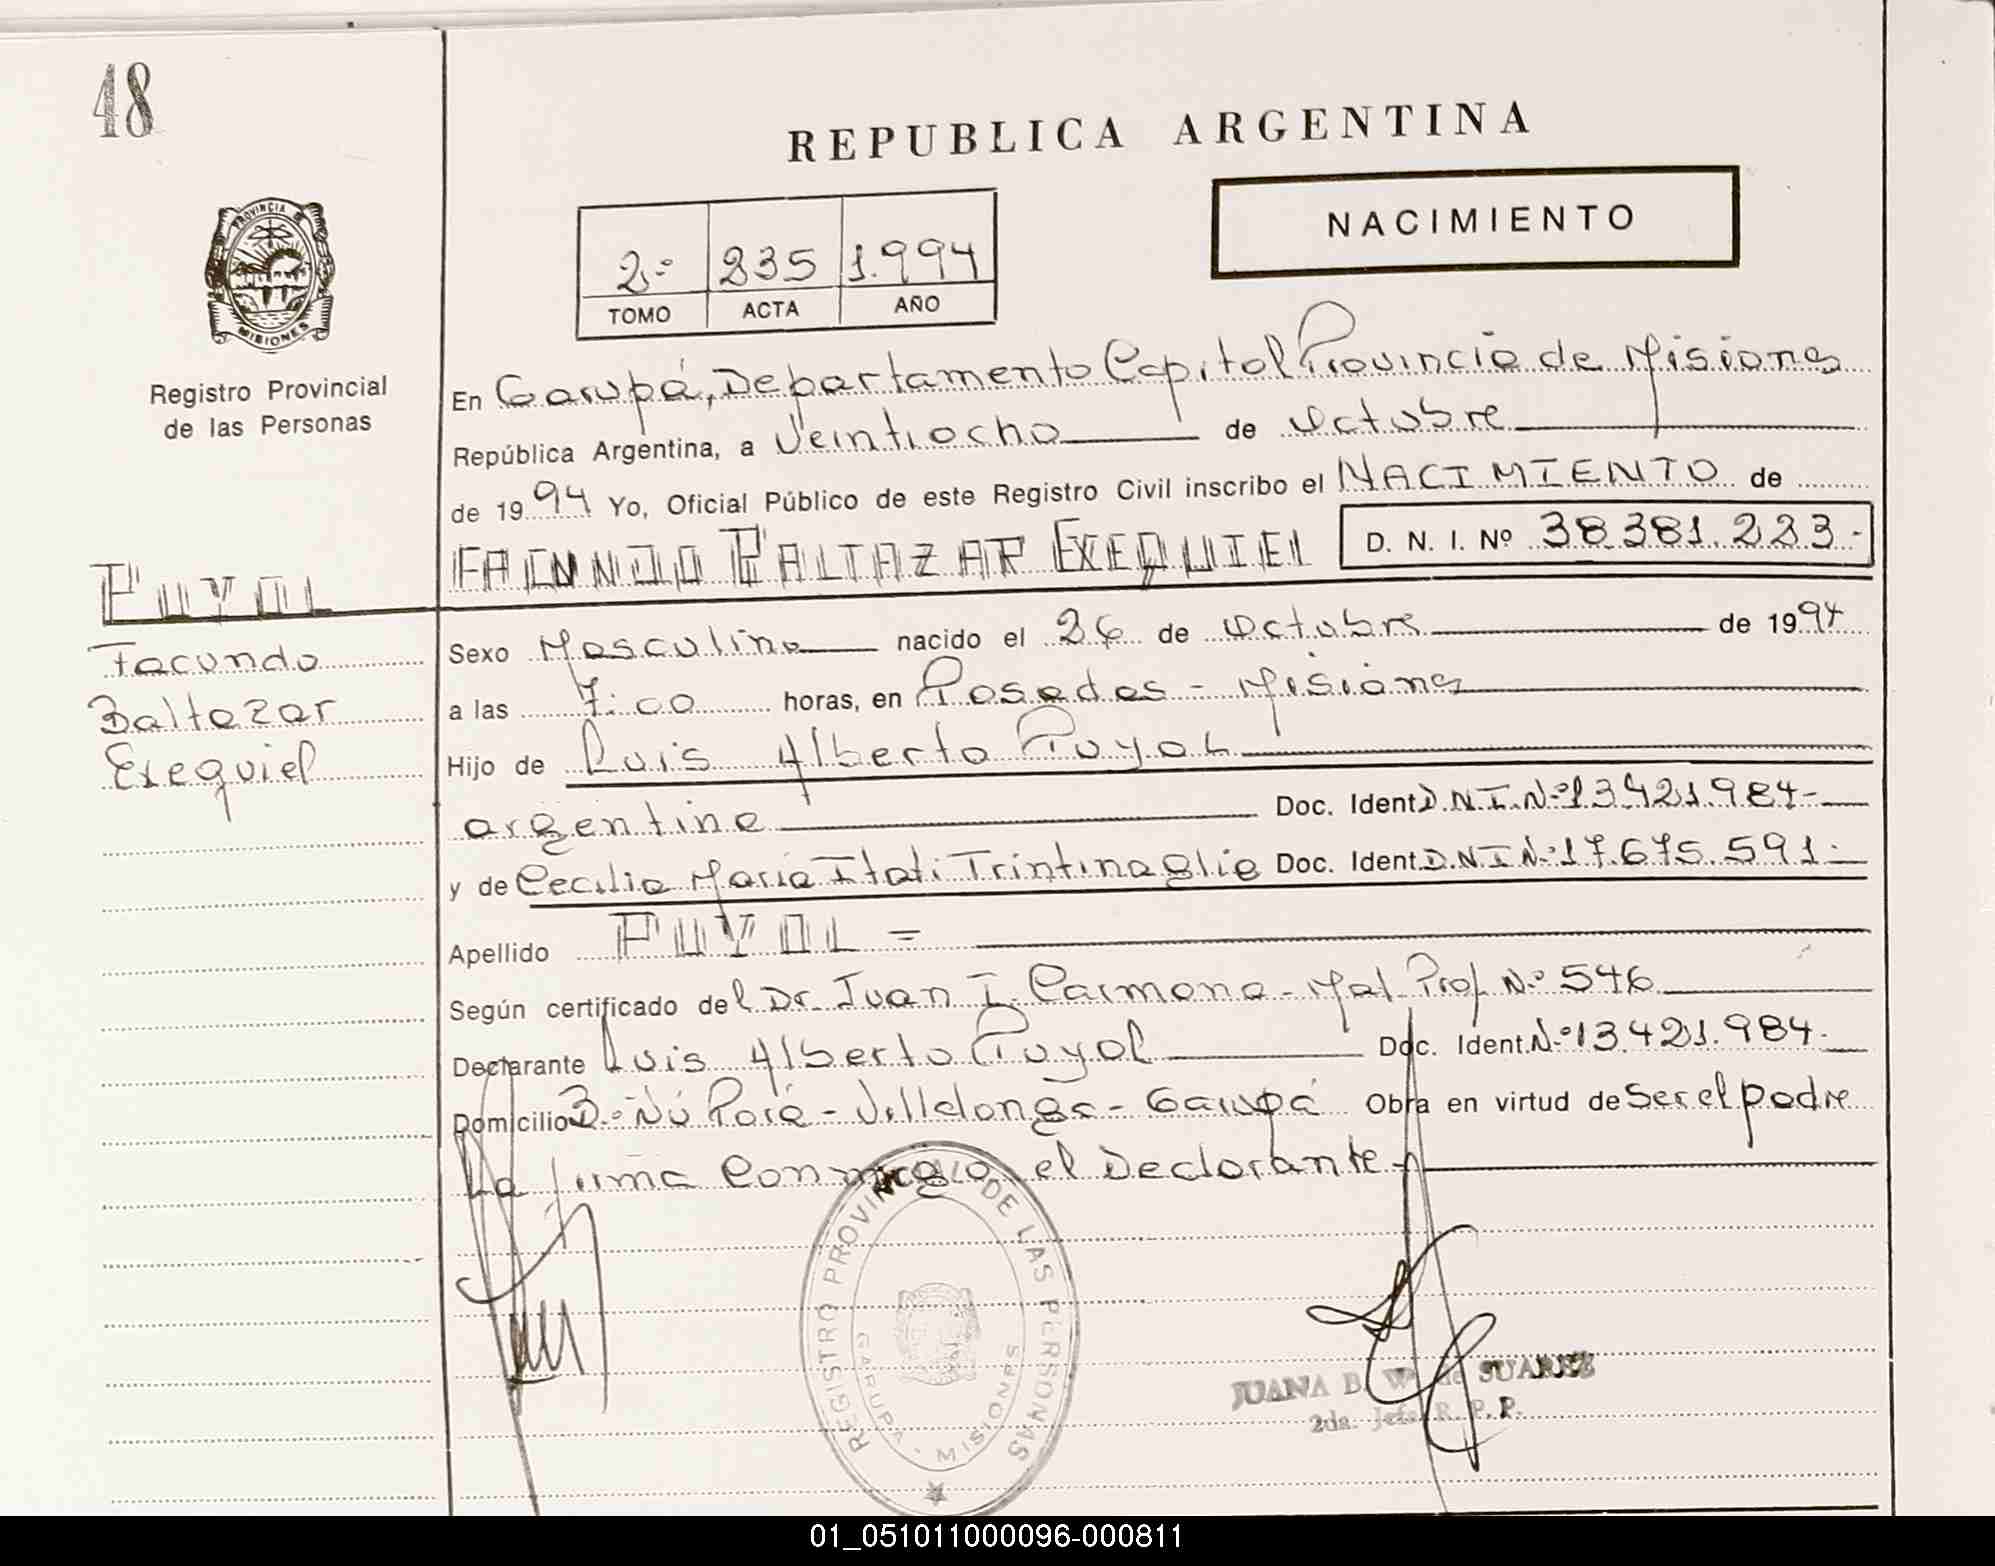 48
REPUBLICA ARGENTINA
NACIMIENTO
2º 235 1.994
TOMO ACTA AÑO
PROVINCIA DE MISIONES
Registro Provincial
de las Personas
En Garupá, Departamento Capital Provincia de Misiones
República Argentina, a Veintiocho de Octubre
de 1994 Yo, Oficial Público de este Registro Civil inscribo el NACIMIENTO de
FACUNDO BALTAZAR EXEQUIEL D. N. I. Nº 38.381.223.-
PUYOL
Facundo
Baltazar
Exequiel
Sexo Masculino nacido el 26 de Octubre de 1994
a las 7:00 horas, en Posadas - Misiones
Hijo de Luis Alberto Puyol
argentino Doc. Ident D.N.I.Nº 13.421.984-
y de Cecilia María Itatí Trintinaglia Doc. Ident. D.N.I.Nº 17.675.591.-
Apellido PUYOL =
Según certificado del Dr. Juan I. Carmona - Mat. Prof. Nº 546
Declarante Luis Alberto Puyol Doc. Ident. Nº 13.421.984.-
Domicilio Bº Ñú Porá - Villalonga - Garupá Obra en virtud de Ser el padre
La firma Conmigo el Declarante.-
REGISTRO PROVINCIAL DE LAS PERSONAS
GARUPA - MISIONES
JUANA B. W. de SUAREZ
2da. Jefa R. P. P.
01_051011000096-000811